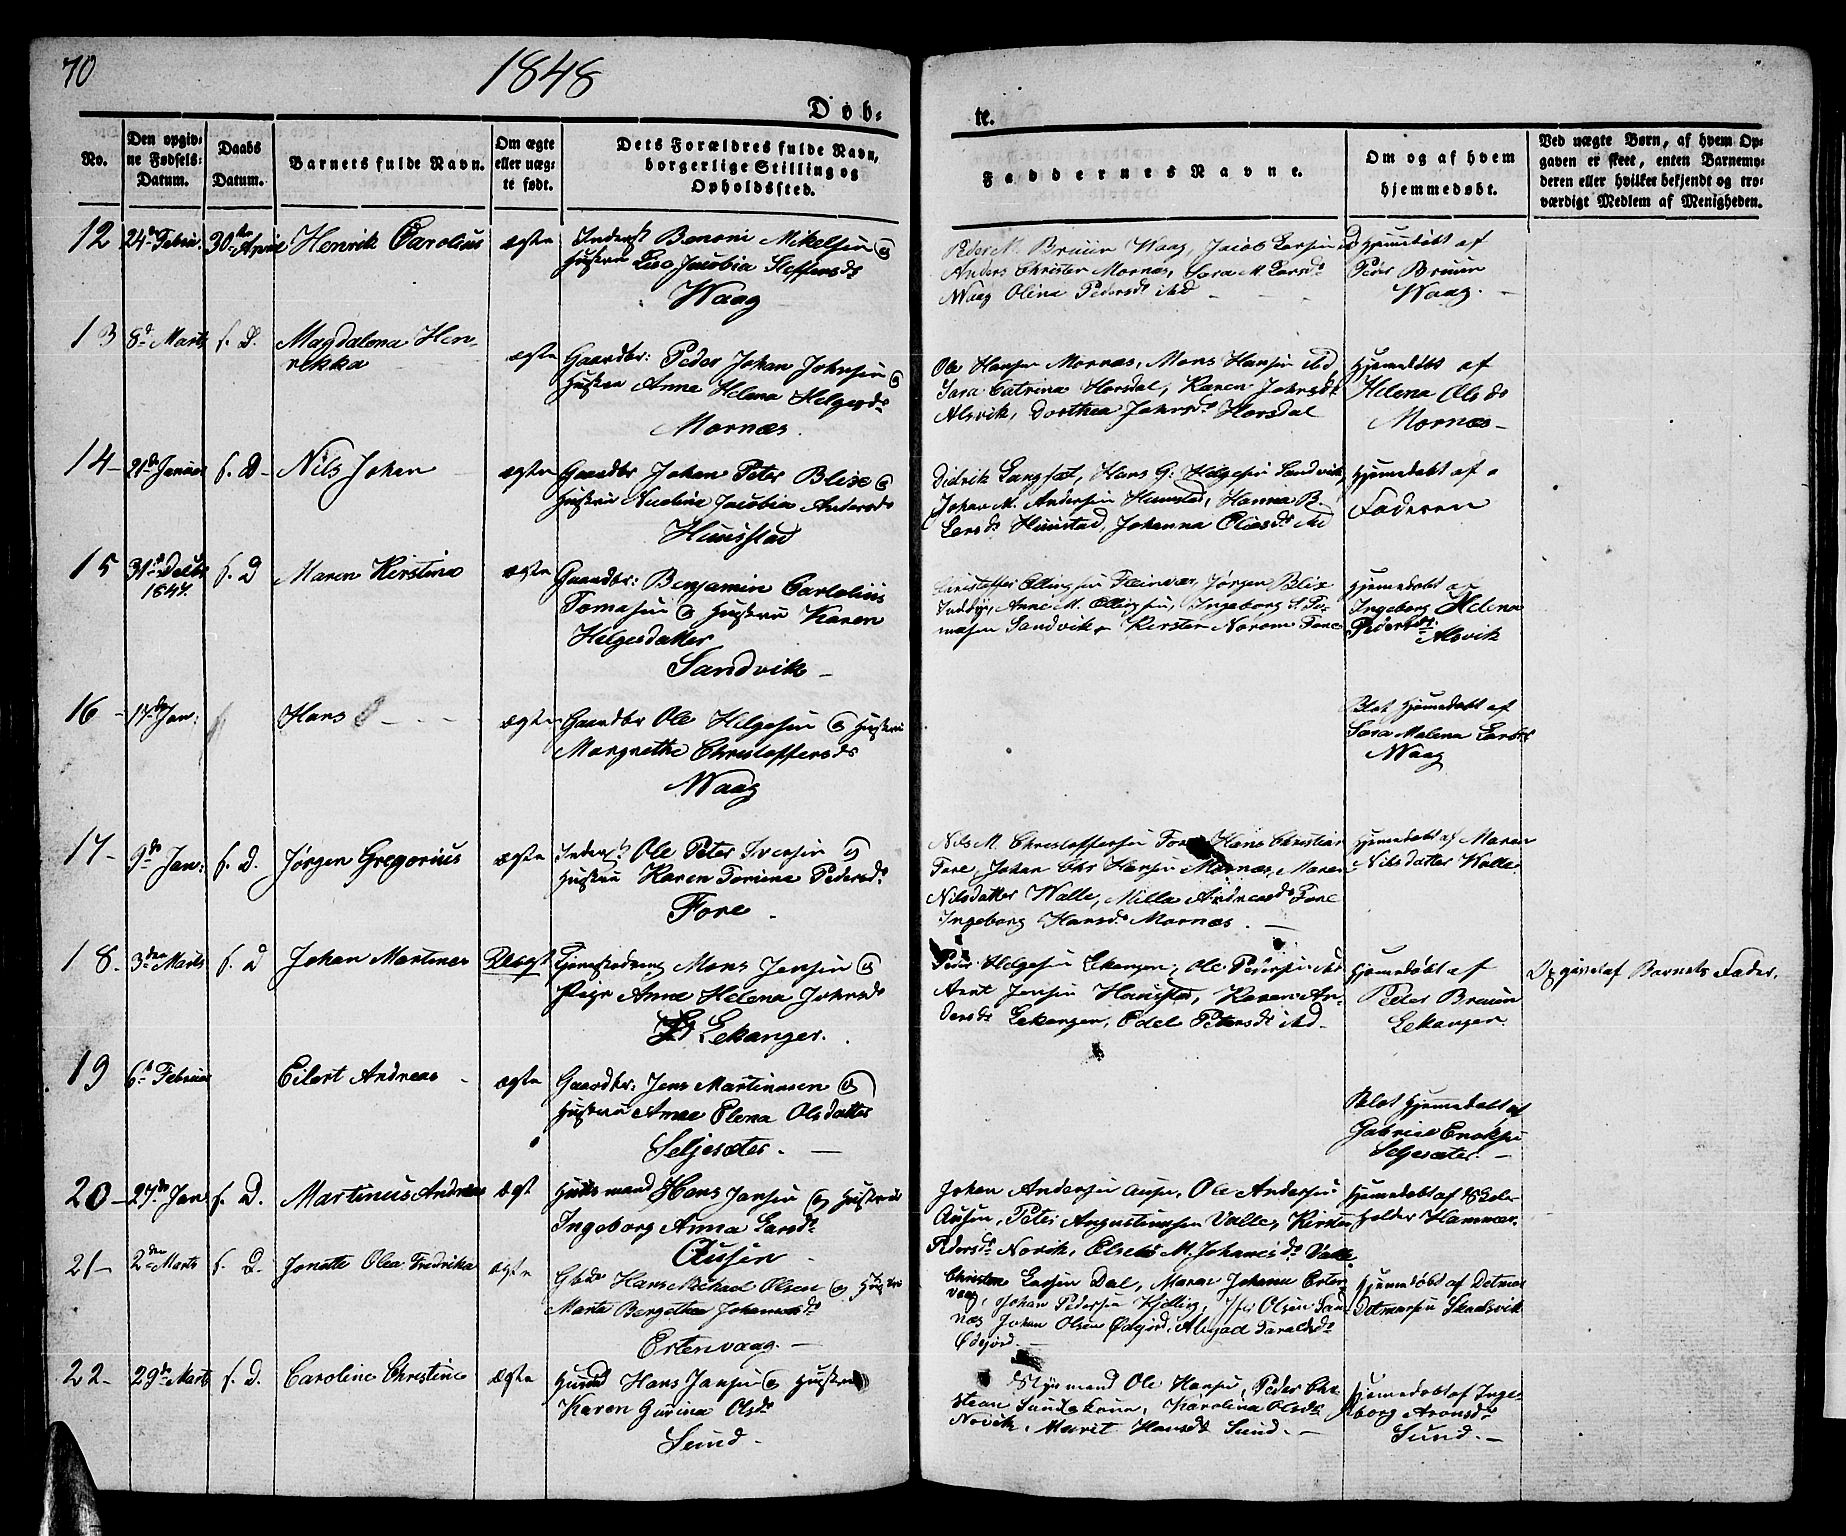 70
1848
Døb-
te.
No.
Den opgiv-
ne Fødsels-
Datum.
Daabs
Datum.
Barnets fulde Navn.
Om ægte
eller uæg-
te født.
Dets Forældres fulde Navn,
borgerlige Stilling og
Opholdssted.
Faddernes Navne.
Om og af hvem
hjemmedøbt.
Ved uægte Børn, af hvem Op-
gaven er skeet, enten Barnemo-
deren eller hvilket bekjendt og tro-
værdigt Medlem af Menigheden.
12
24de Febru.
30te April
Henrik Carolius
ægte
Inderst Benoni Mikelsen og
Hustru Lise Jacobia Steffensdr
Waag
Peder M. Bruun Waag, Jacob Larsen ibd
Anders Christen Mornæs, Sara M. Larsdr
Waag Olina Pedersdr ibd
Hjemmedøbt af
Peder Bruun
Waag.
13
8d Marts
s. D.
Magdalena Hen-
rikka
ægte
Gaardbr: Peder Johan Johnsen og
Hustru Anne Helena Helgesdr
Mornæs.
Ole Hansen Mornæs, Mons Hansen ibd
Sara Catrina Horsdal, Karen Johnsdr
Alsvik, Dorthea Johnsdr Horsdal
Hjemmedøbt af
Helena Olsdr
Mornæs
14
21de Januar
s. D
Nils Johan
ægte
Gaardbr Johan Peter Blix og
Hustru Nicolina Jacobia Andersdr
Hunstad
Didrik Langset, Hans G. Helgesen Sandvik
Johan M. Andersen Hunstad, Hanna B.
Larsdr Hunstad, Johanna Eliasdr ibd
Hjemmedøbt af
Faderen
15
31te Decbr
1847.
s. D
Maren Kirstine
ægte
Gaardbr: Benjamin Carlolius
Tomasen og Hustru Karen
Helgesdatter
Sandvik
Christoffer Ellingsen Fleinvær, Jørgen Blix
Anne M. Ellingsen, Ingeborg S. To-
masen Sandvik, Kirsten Norom Fore
Hjemmedøbt af
Ingeborg Helena
Pedersdr:
Alsvik
16
17de Jan:
Hans
ægte
Gaardbr Ole Helgesen og Hustru
Margrethe Christoffersdr
Waag
Blot hjemmedøbt af
Sara Malena Larsdr
Waag
17
9de Jan:
s. D.
Jørgen Gregorius
ægte
Inderst Ole Peter Iversen og
Hustru Karen Torina Pedersdr
Fore
Nils M. Christoffersen Fore, Hans Christian
Fore, Johan Chr Hansen Mornæs, Maren
Nilsdatter Walle, Milla Andreasdr Fore
Ingeborg Hansdr Mornæs.
Hjemmedøbt af Maren
Nilsdatter Walle.
18.
3die Marts
s. D
Johan Martines
Uægt
Tjenestedreng Mons Jensen og
Pige Anne Helena Johnsdr
Lekanger.
Peder Helgesen Lekanger, Ole Pedersen ibd
Arnt Jensen Hunstad, Karen An-
dersdr Lekanger, Edel Petersdr ibd.
Hjemmedøbt af
Peder Bruun
Lekanger.
Opgivet af Barnets Fader.
19
6te Februar
Eilert Andreas
ægte
Gaardbr: Jens Martinusen og
Hustru Anne Elena Olsdatter
Seljesæter.
Blot hjemmedøbt af
Gabriel Enoksen
Seljesæter.
20
27de Jan
s. D.
Martinus Andreas
ægt
Huusmand Hans Jansen og Hustru
Ingeborg Anna Larsdr
Ausen
Johan Andersen Ausen, Ole Andersen
Ausen, Peter Angustinussen Valle, Kirsten
Pedersdr Norvik, Elsebe M. Johanesdr Valle
Hjemmedøbt af Skole-
holder Hammer.
21
2den Marts
s. D.
Jonette Olea Fredrika
ægte
Gbdr Hans Michael Olsen og Hustru
Marta Bergethea Johannesdr
Ertenvaag.
Christen Larsen Dal, Maren Johana Erten-
vaag, Johan Pedersen Kjelling, Olsen Sand-
næs Johan Olsen Ødejord, Abigael Taraldsdr
Ødejord.
Hjemmedøbt af Detmar
Detmarsen Skadsvik
22
29de Marts
s. D.
Caroline Christine
ægte
Huusmd Hans Jansen og Hustru
Karen Gurina Olsdr
Sund.
Styrmand Ole Hansen, Peder Chr
Karolina Olsdr
Norvik, Marit Hansdr Sund.
Hjemmedøbt af Inge-
borg Aronsdr
Sund.